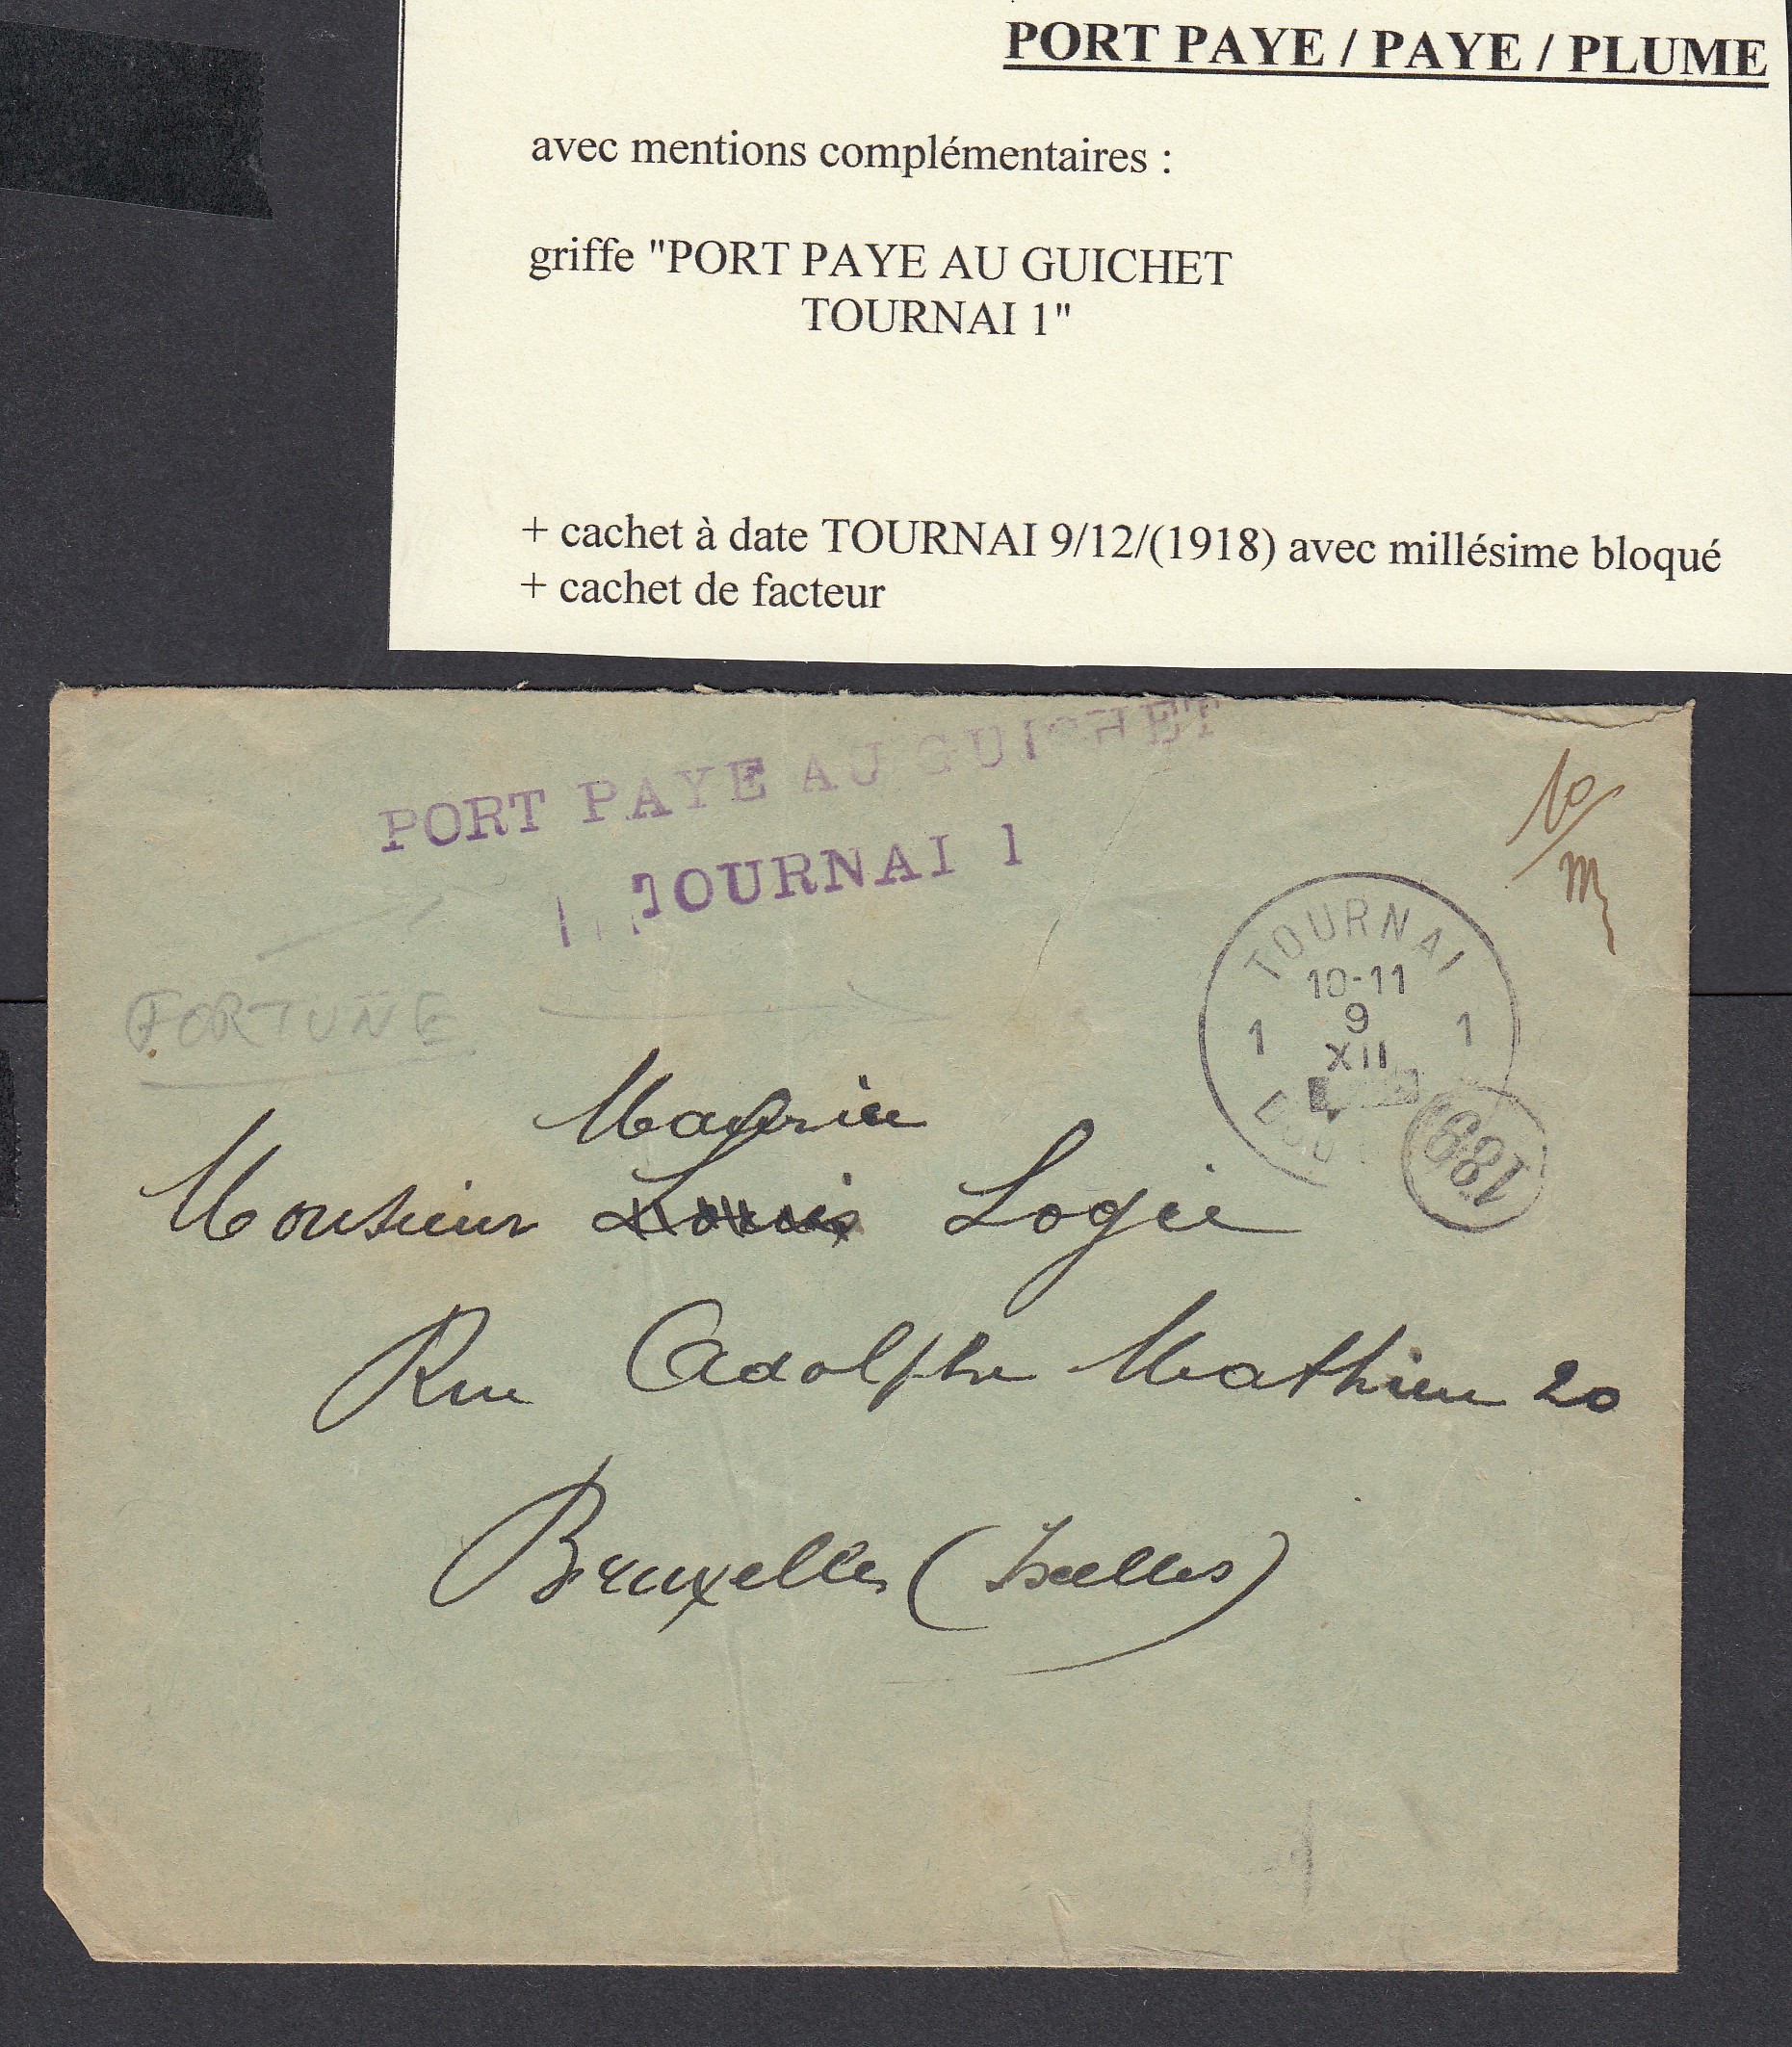 PORT PAYE / PAYE / PLUME
avec mentions complémentaires :
griffe "PORT PAYE AU GUICHET
TOURNAI 1"
+ cachet à date TOURNAI 9/12/(1918) avec millésime bloqué
+ cachet de facteur
PORT PAYE AU GUICHET
TOURNAI 1
FORTUNE
TOURNAI
10-11
9
1 XII 1
189
Monsieur Louis Logie
Rue Adolphe Mathieu 20
Bruxelles (Ixelles)